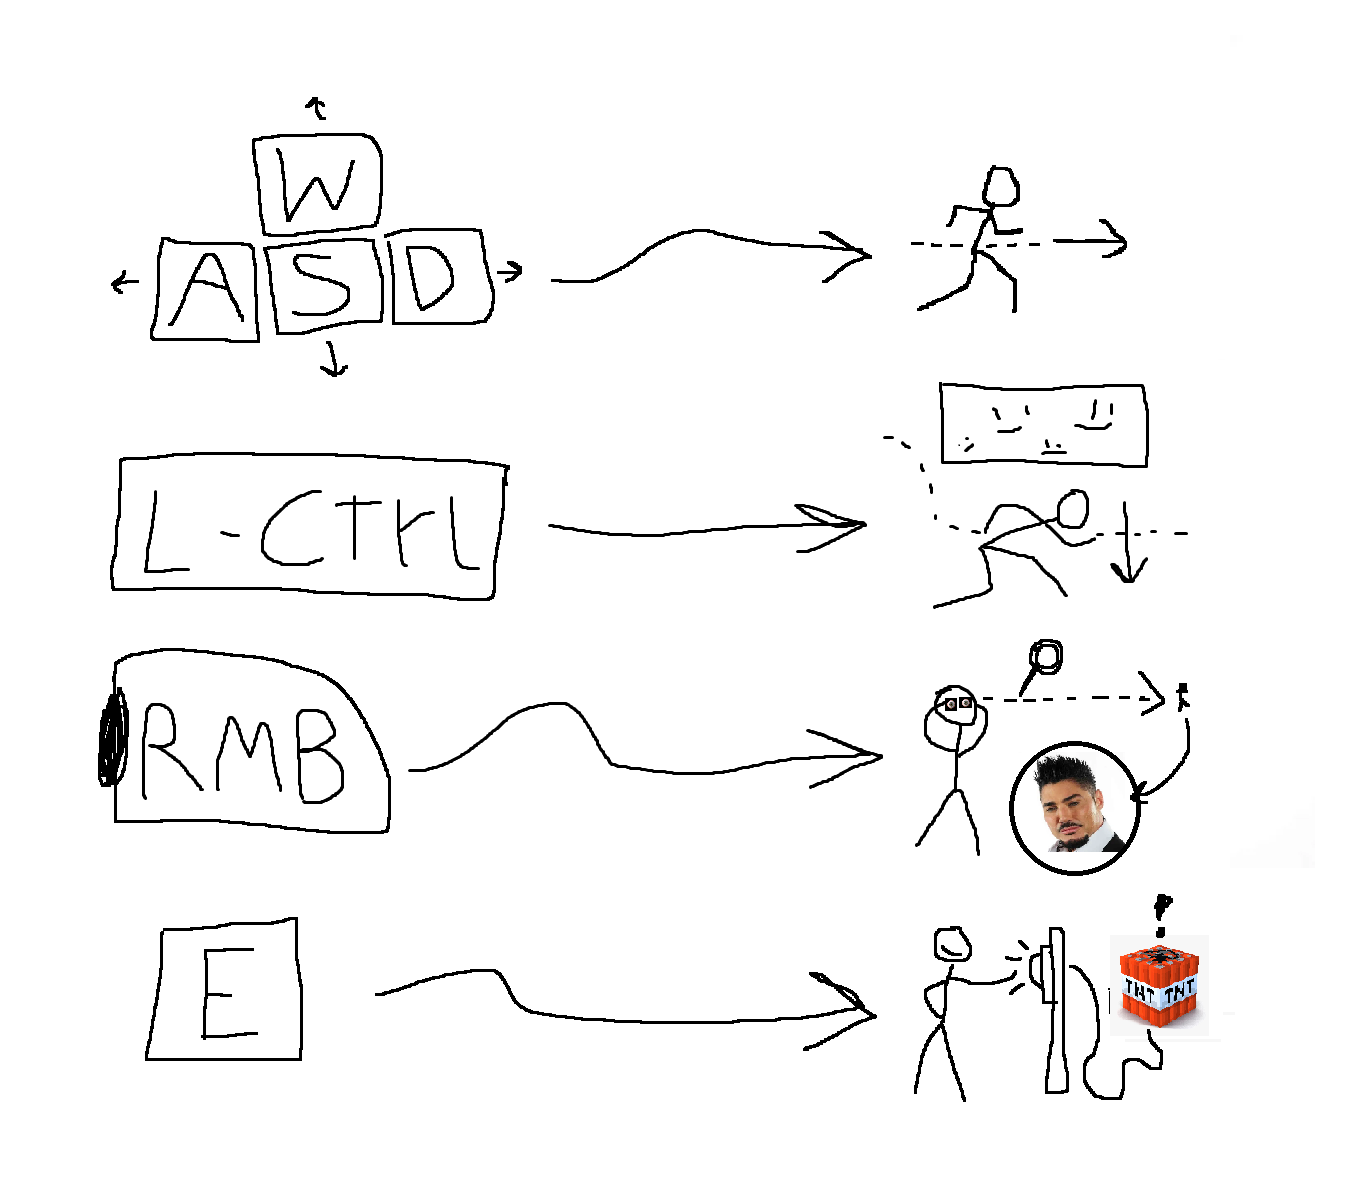 W
A S D
L-CTRL
RMB
E
!
TNT TNT